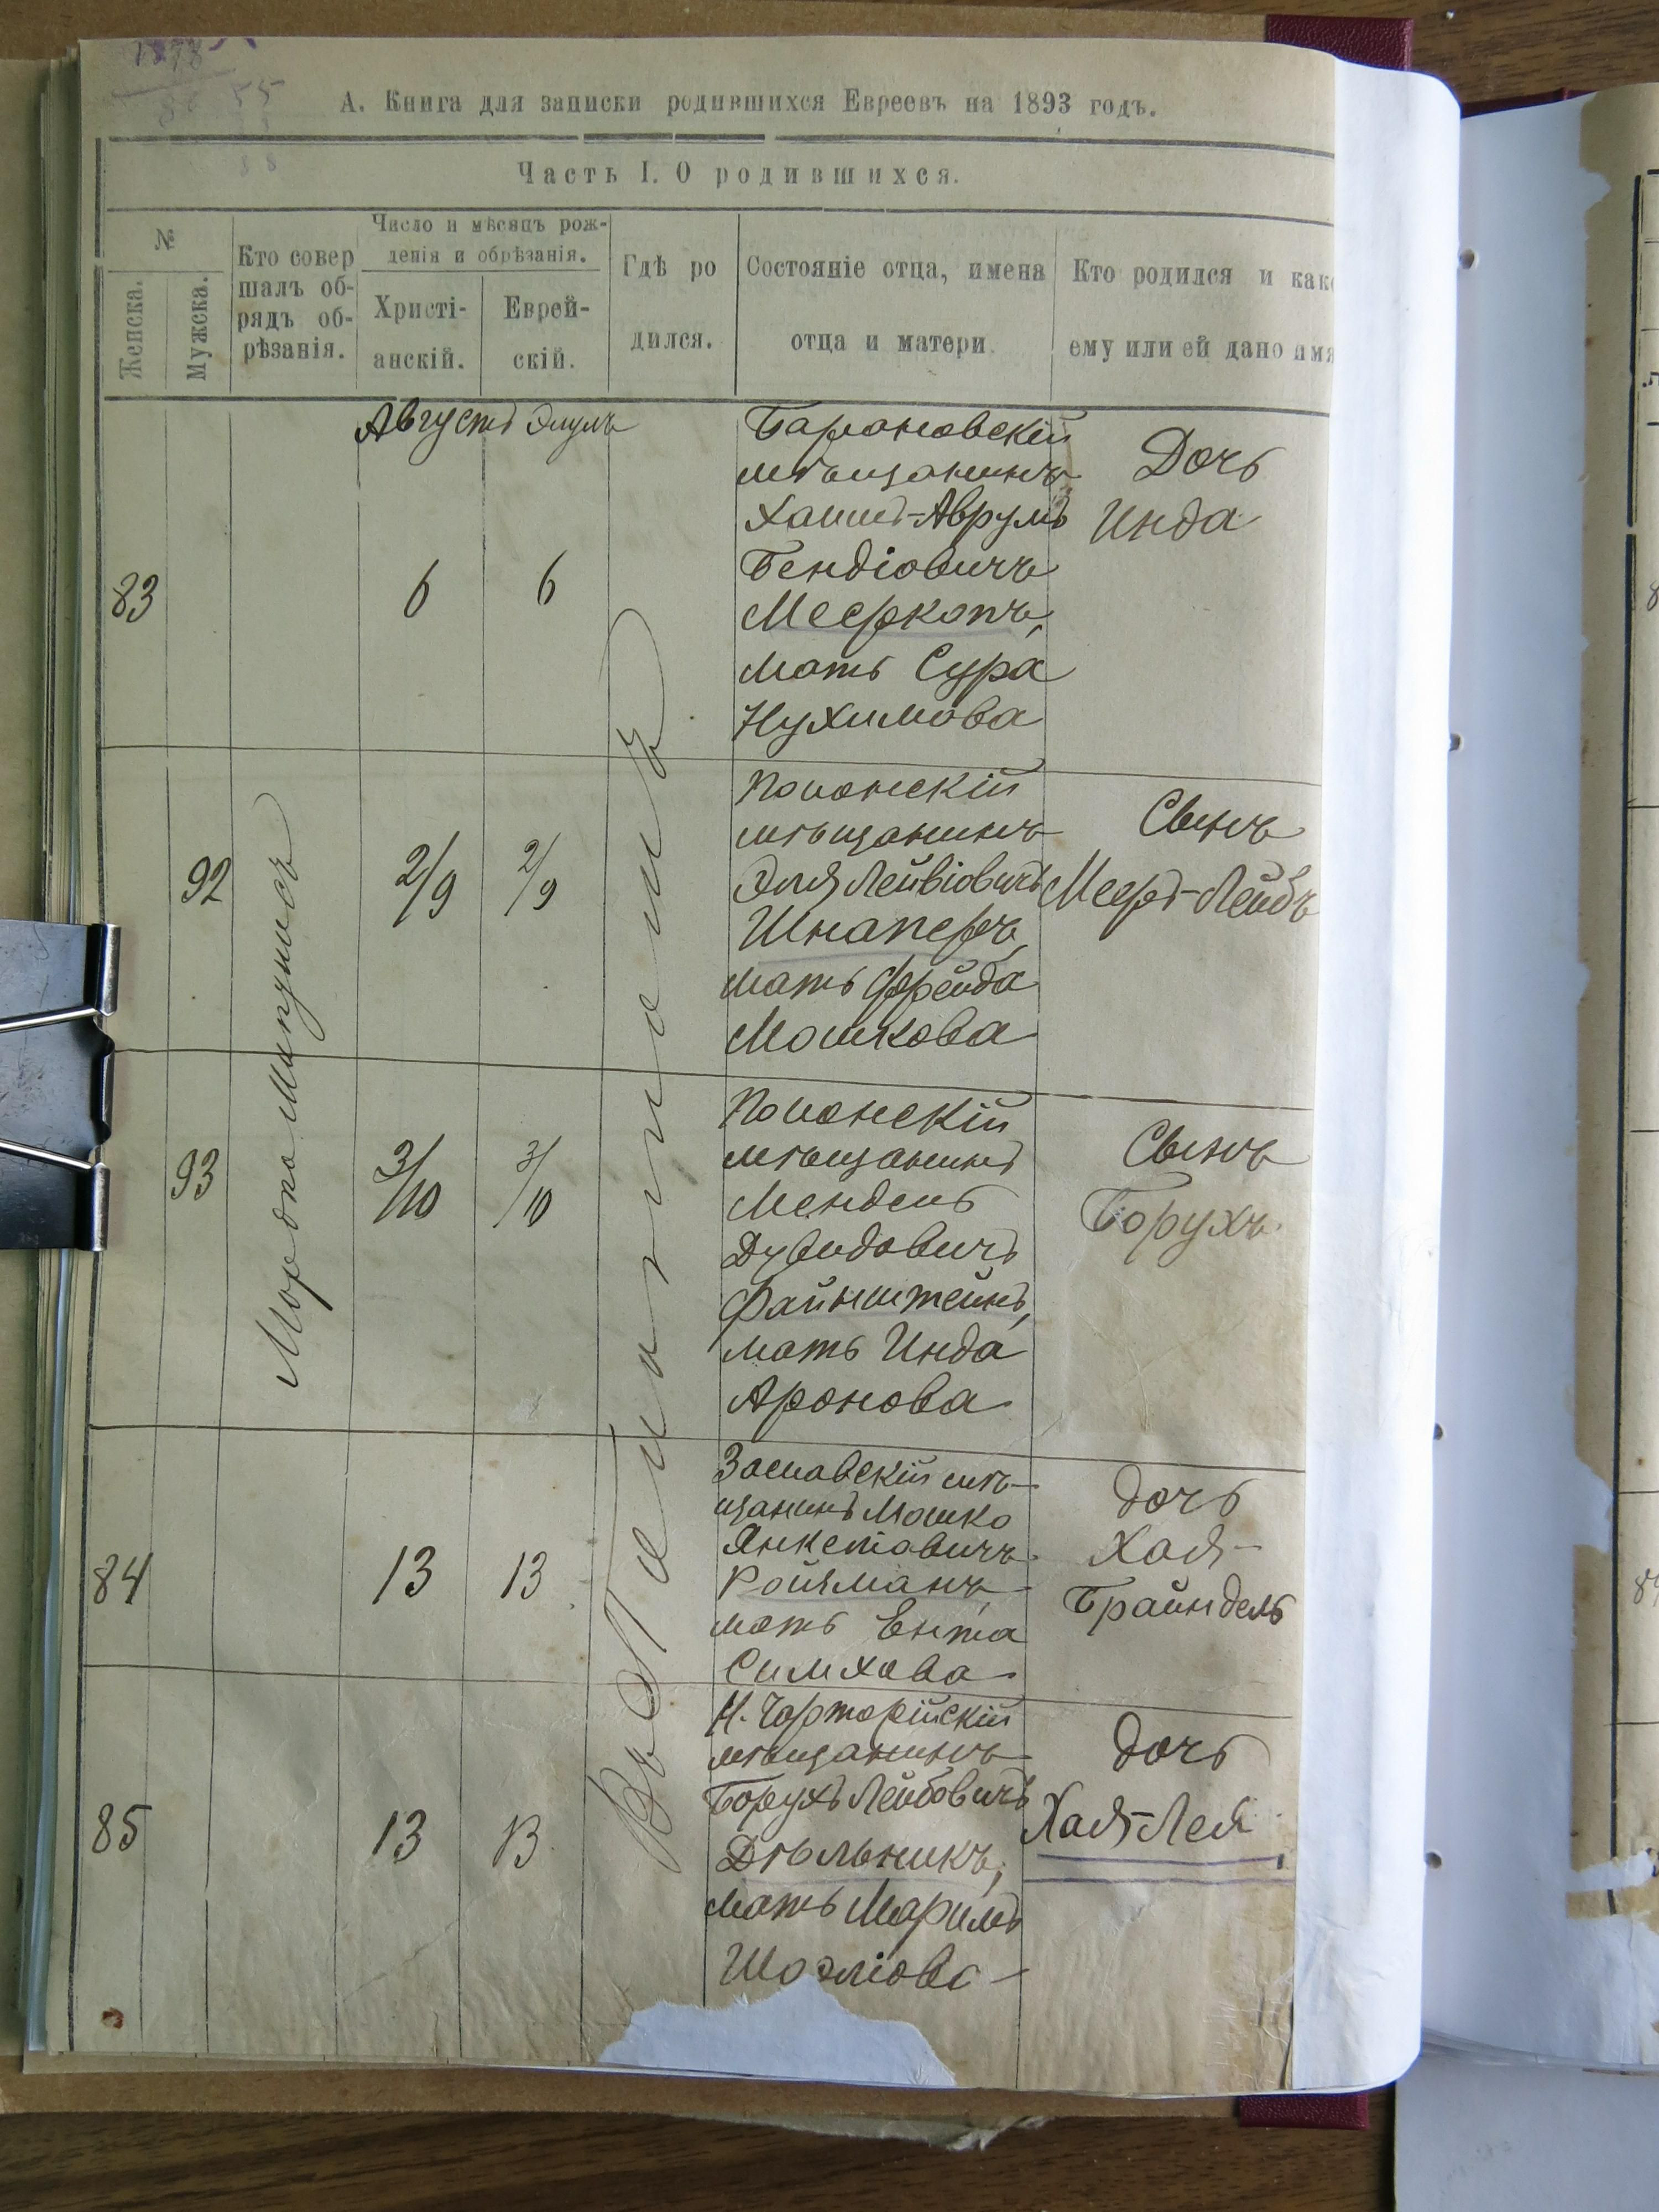 А. Книга для записки родившихся Евреевъ на 1893 годъ.
Часть I. О родившихся.
№
Женска.
Мужска.
Кто совер
шалъ об-
рядъ об-
рѣзанія.
Число и мѣсяцъ рож-
денія и обрѣзанія.
Христі-
анскій.
Еврей-
скій.
Гдѣ ро
дился.
Состояніе отца, имена
отца и матери
Кто родился и како
ему или ей дано имя
Августъ Элулъ
83
6
6
Барановскій
мѣщанинъ
Хаимъ-Аврумъ
Бендіовичъ
Мееркопъ,
мать Сура
Нухимова
Дочь
Инда
92
2/9
2/9
Полонскій
мѣщанинъ
Эля Лейвіовичъ
Шнаперъ,
мать Фрейда
Мошкова
Сынъ
Мееръ-Лейбъ
93
3/10
3/10
Полонскій
мѣщанинъ
Мендель
Дувидовичъ
Файнштейнъ,
мать Инда
Аронова
Сынъ
Борухъ
84
13
13
Заславскій мѣ-
щанинъ Мошко
Янкелевичъ
Ройзманъ,
мать Ента
Симхова
дочь
Хая-
Брайндель
85
13
13
Н. Чорторійскій
мѣщанинъ
Борухъ Лейбовичъ
Дѣльникъ,
мать Маримъ
дочь
Хая-Лея